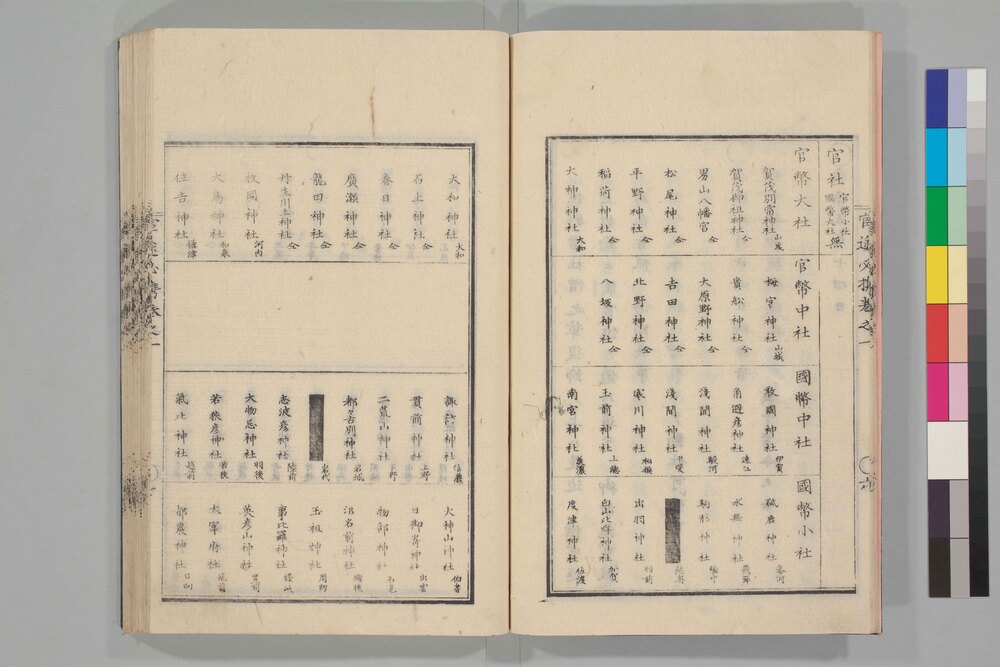 官社 官幣小社 國幣大社 無
官幣大社
賀茂別雷神社 山城
賀茂御祖神社 仝
男山八幡宮 仝
松尾神社 仝
平野神社 仝
稲荷神社 仝
大神神社 大和
官幣中社
梅宮神社 山城
貴船神社 仝
大原野神社 仝
吉田神社 仝
北野神社 仝
八坂神社 仝
國幣中社
敢國神社 伊賀
角避彦神社 遠江
淺間神社 駿河
淺間神社 甲斐
寒川神社 相模
玉前神社 上總
南宮神社 美濃
國幣小社
砥鹿神社 參河
水無神社 飛驒
駒形神社 陸中
出羽神社 羽前
白山比咩神社 加賀
度津神社 佐渡
官途必携卷之一
六
大和神社 大和
石上神社 仝
春日神社 仝
廣瀬神社 仝
龍田神社 仝
丹生川上神社 仝
枚岡神社 河内
大鳥神社 和泉
住吉神社 攝津
諏訪神社 信濃
貫前神社 上野
二荒山神社 下野
都々古別神社 岩城
志波彦神社 陸前
大物忌神社 羽後
若狹彦神社 若狹
氣比神社 越前
大神山神社 伯耆
日御碕神社 出雲
物部神社 石見
沼名前神社 備後
玉祖神社 周防
事比羅神社 讃岐
英彦山神社 豊前
太宰府神社 筑前
都農神社 日向